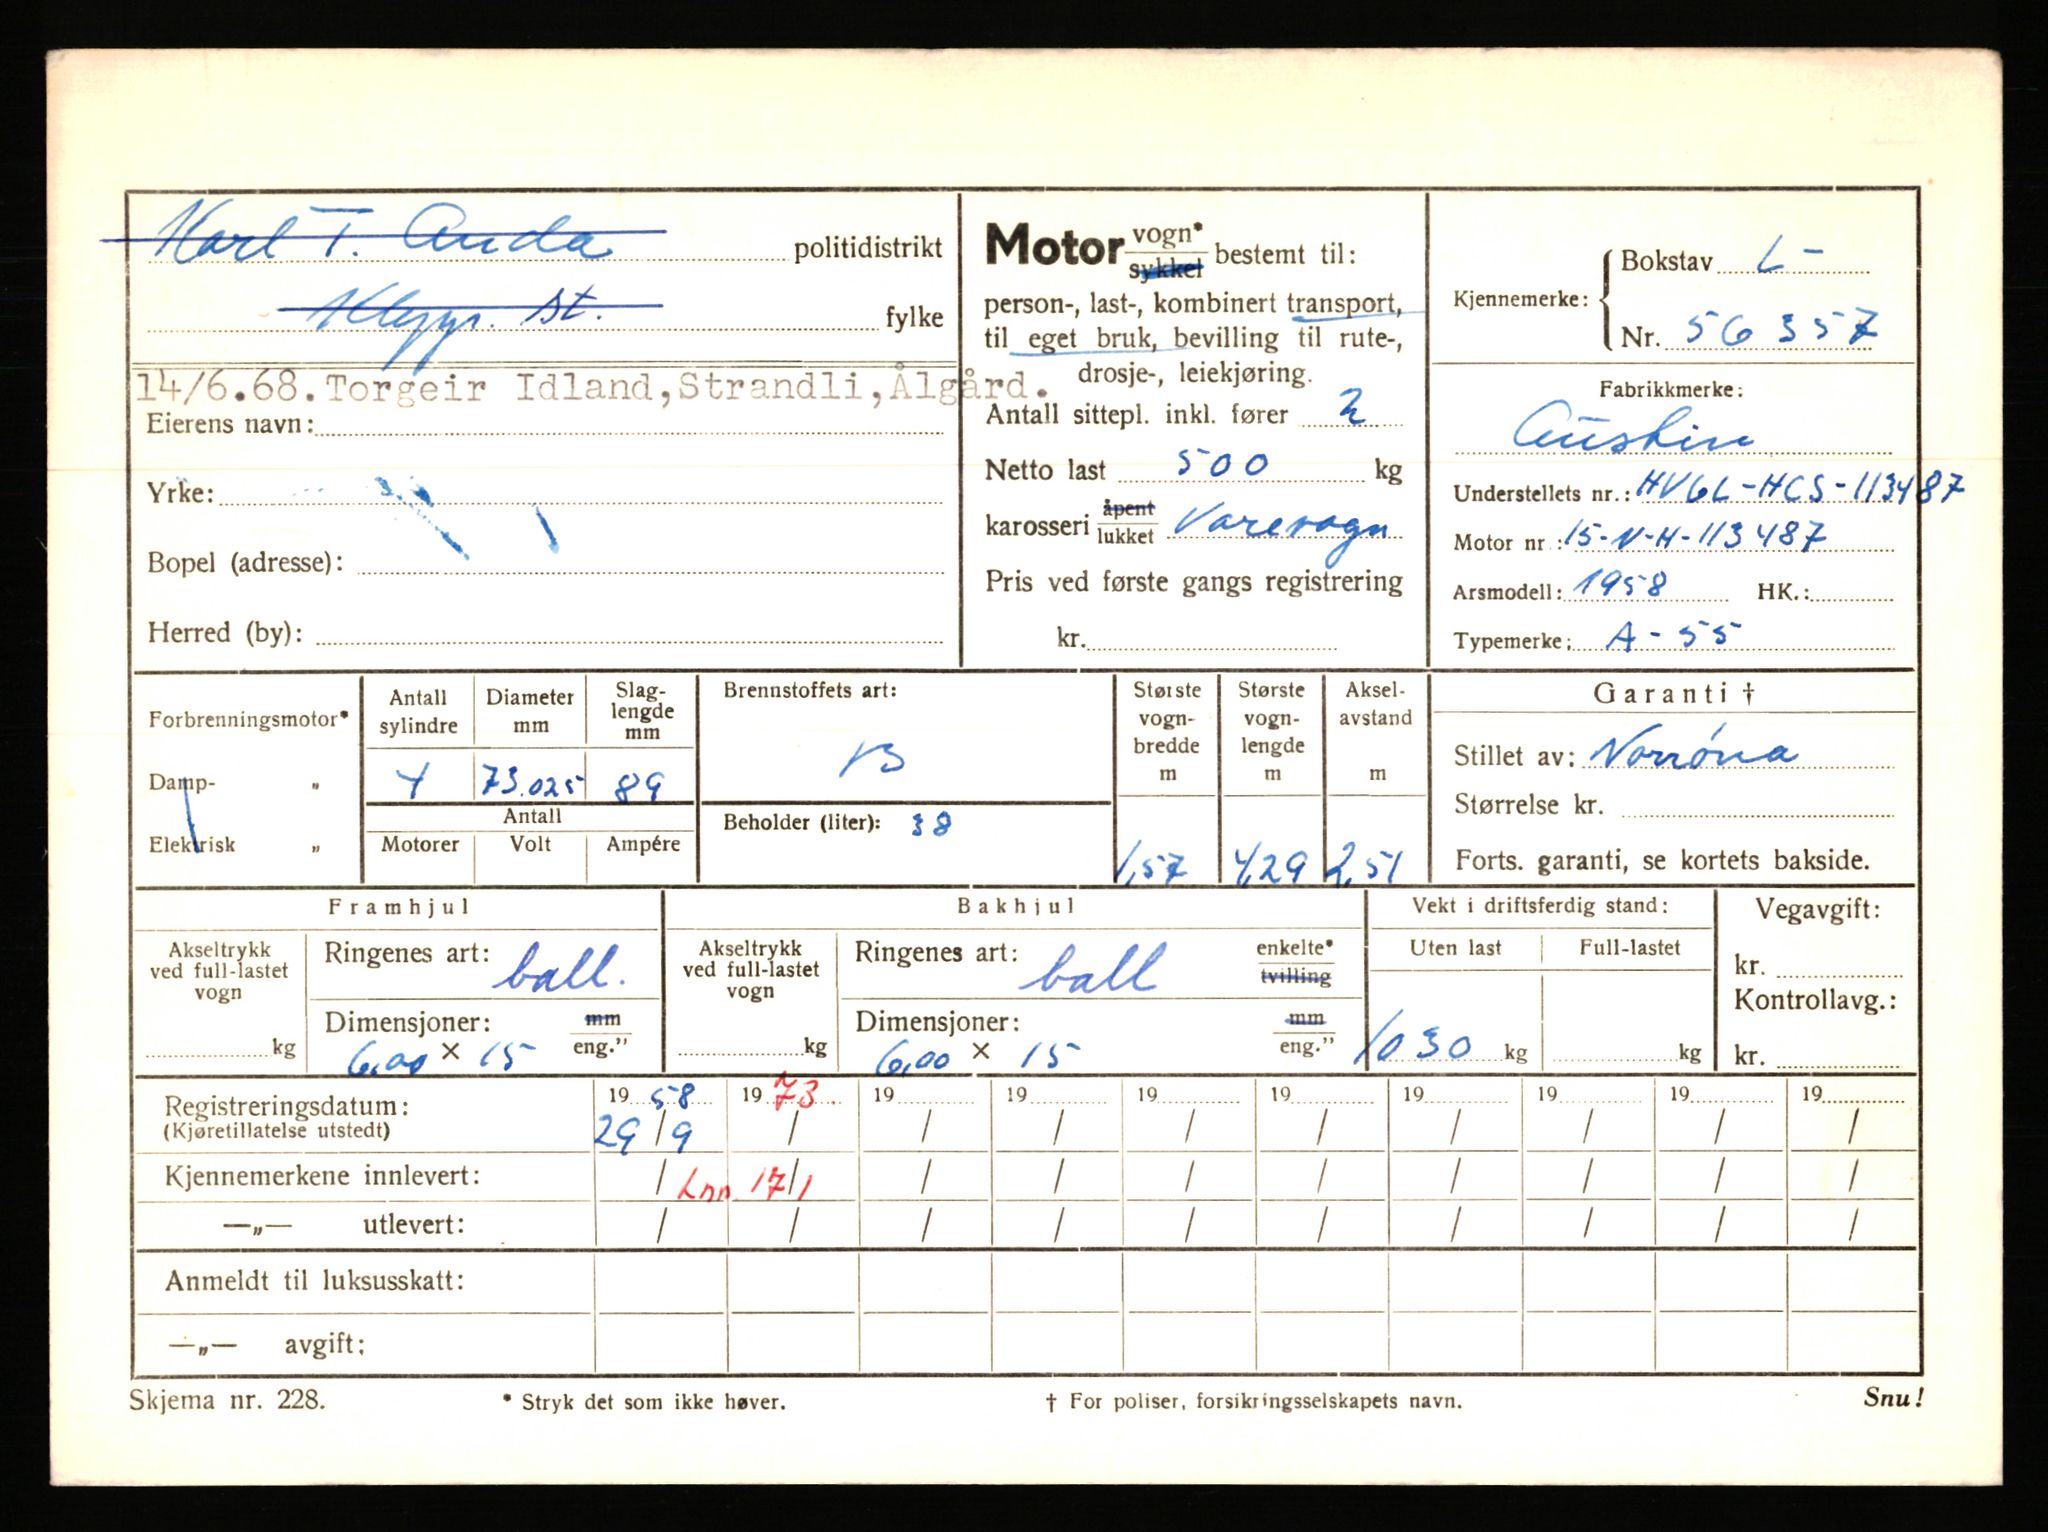 Karl T. Anda politidistrikt
Klepp. st. fylke
14/6.68. Torgeir Idland, Strandli, Ålgård.
Eierens navn:
Yrke:
Bopel (adresse):
Herred (by):
Motor vogn* sykkel bestemt til:
person-, last-, kombinert transport,
til eget bruk, bevilling til rute-,
drosje-, leiekjøring.
Antall sittepl. inkl. fører 2
Netto last 500 kg
karosseri åpent lukket Varevogn
Pris ved første gangs registrering
kr.
Kjennemerke: Bokstav L-
Nr. 56357
Fabrikkmerke:
Austin
Understellets nr.: HV6L-HCS-113487
Motor nr.: 15-N-H-113487
Arsmodell: 1958 HK.:
Typemerke: A-55
Forbrenningsmotor*
Damp- „
Elektrisk „
Antall sylindre Diameter mm Slag-lengde mm
4 73.025 89
Antall
Motorer Volt Ampére
Brennstoffets art:
B
Beholder (liter): 38
Største vogn-bredde m
1,57
Største vogn-lengde m
4,29
Aksel-avstand m
2,51
Garanti †
Stillet av: Norrøna
Størrelse kr.
Forts. garanti, se kortets bakside.
Framhjul
Akseltrykk ved full-lastet vogn
kg
Ringenes art: ball.
Dimensjoner: mm eng."
6,00 × 15
Bakhjul
Akseltrykk ved full-lastet vogn
kg
Ringenes art: ball enkelte* tvilling
Dimensjoner: mm eng."
6,00 × 15
Vekt i driftsferdig stand:
Uten last Full-lastet
1030 kg kg
Vegavgift:
kr.
Kontrollavg.:
kr.
Registreringsdatum: 1958 1973 19 19 19 19 19 19 19 19
(Kjøretillatelse utstedt) 29/9 / / / / / / / / /
Kjennemerkene innlevert: / Inn 17/1 / / / / / / / /
—„— utlevert: / / / / / / / / / /
Anmeldt til luksusskatt:
—„— avgift:
Skjema nr. 228. * Stryk det som ikke høver. † For poliser, forsikringsselskapets navn. Snu!